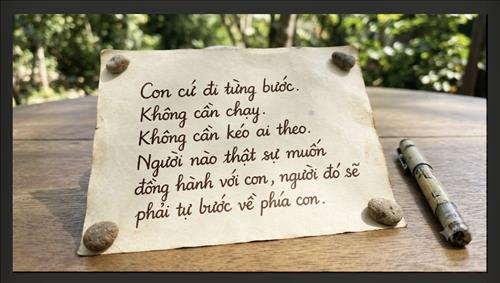 Con cứ đi từng bước.
Không cần chạy.
Không cần kéo ai theo.
Người nào thật sự muốn
đồng hành với con, người đó sẽ
phải tự bước về phía con.